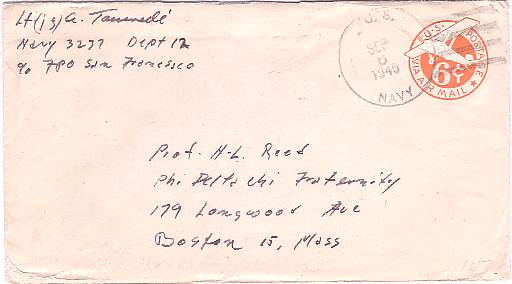 Lt(jg) A.
Navy 3237 Dept 12
℅ FPO San Francisco
U.S.
SEP
6
1945
NAVY
U.S. POSTAGE
6¢
VIA AIR MAIL
Prof. H-L. Reed
Phi Delta Chi Fraternity
179 Longwood Ave
Boston 15, Mass